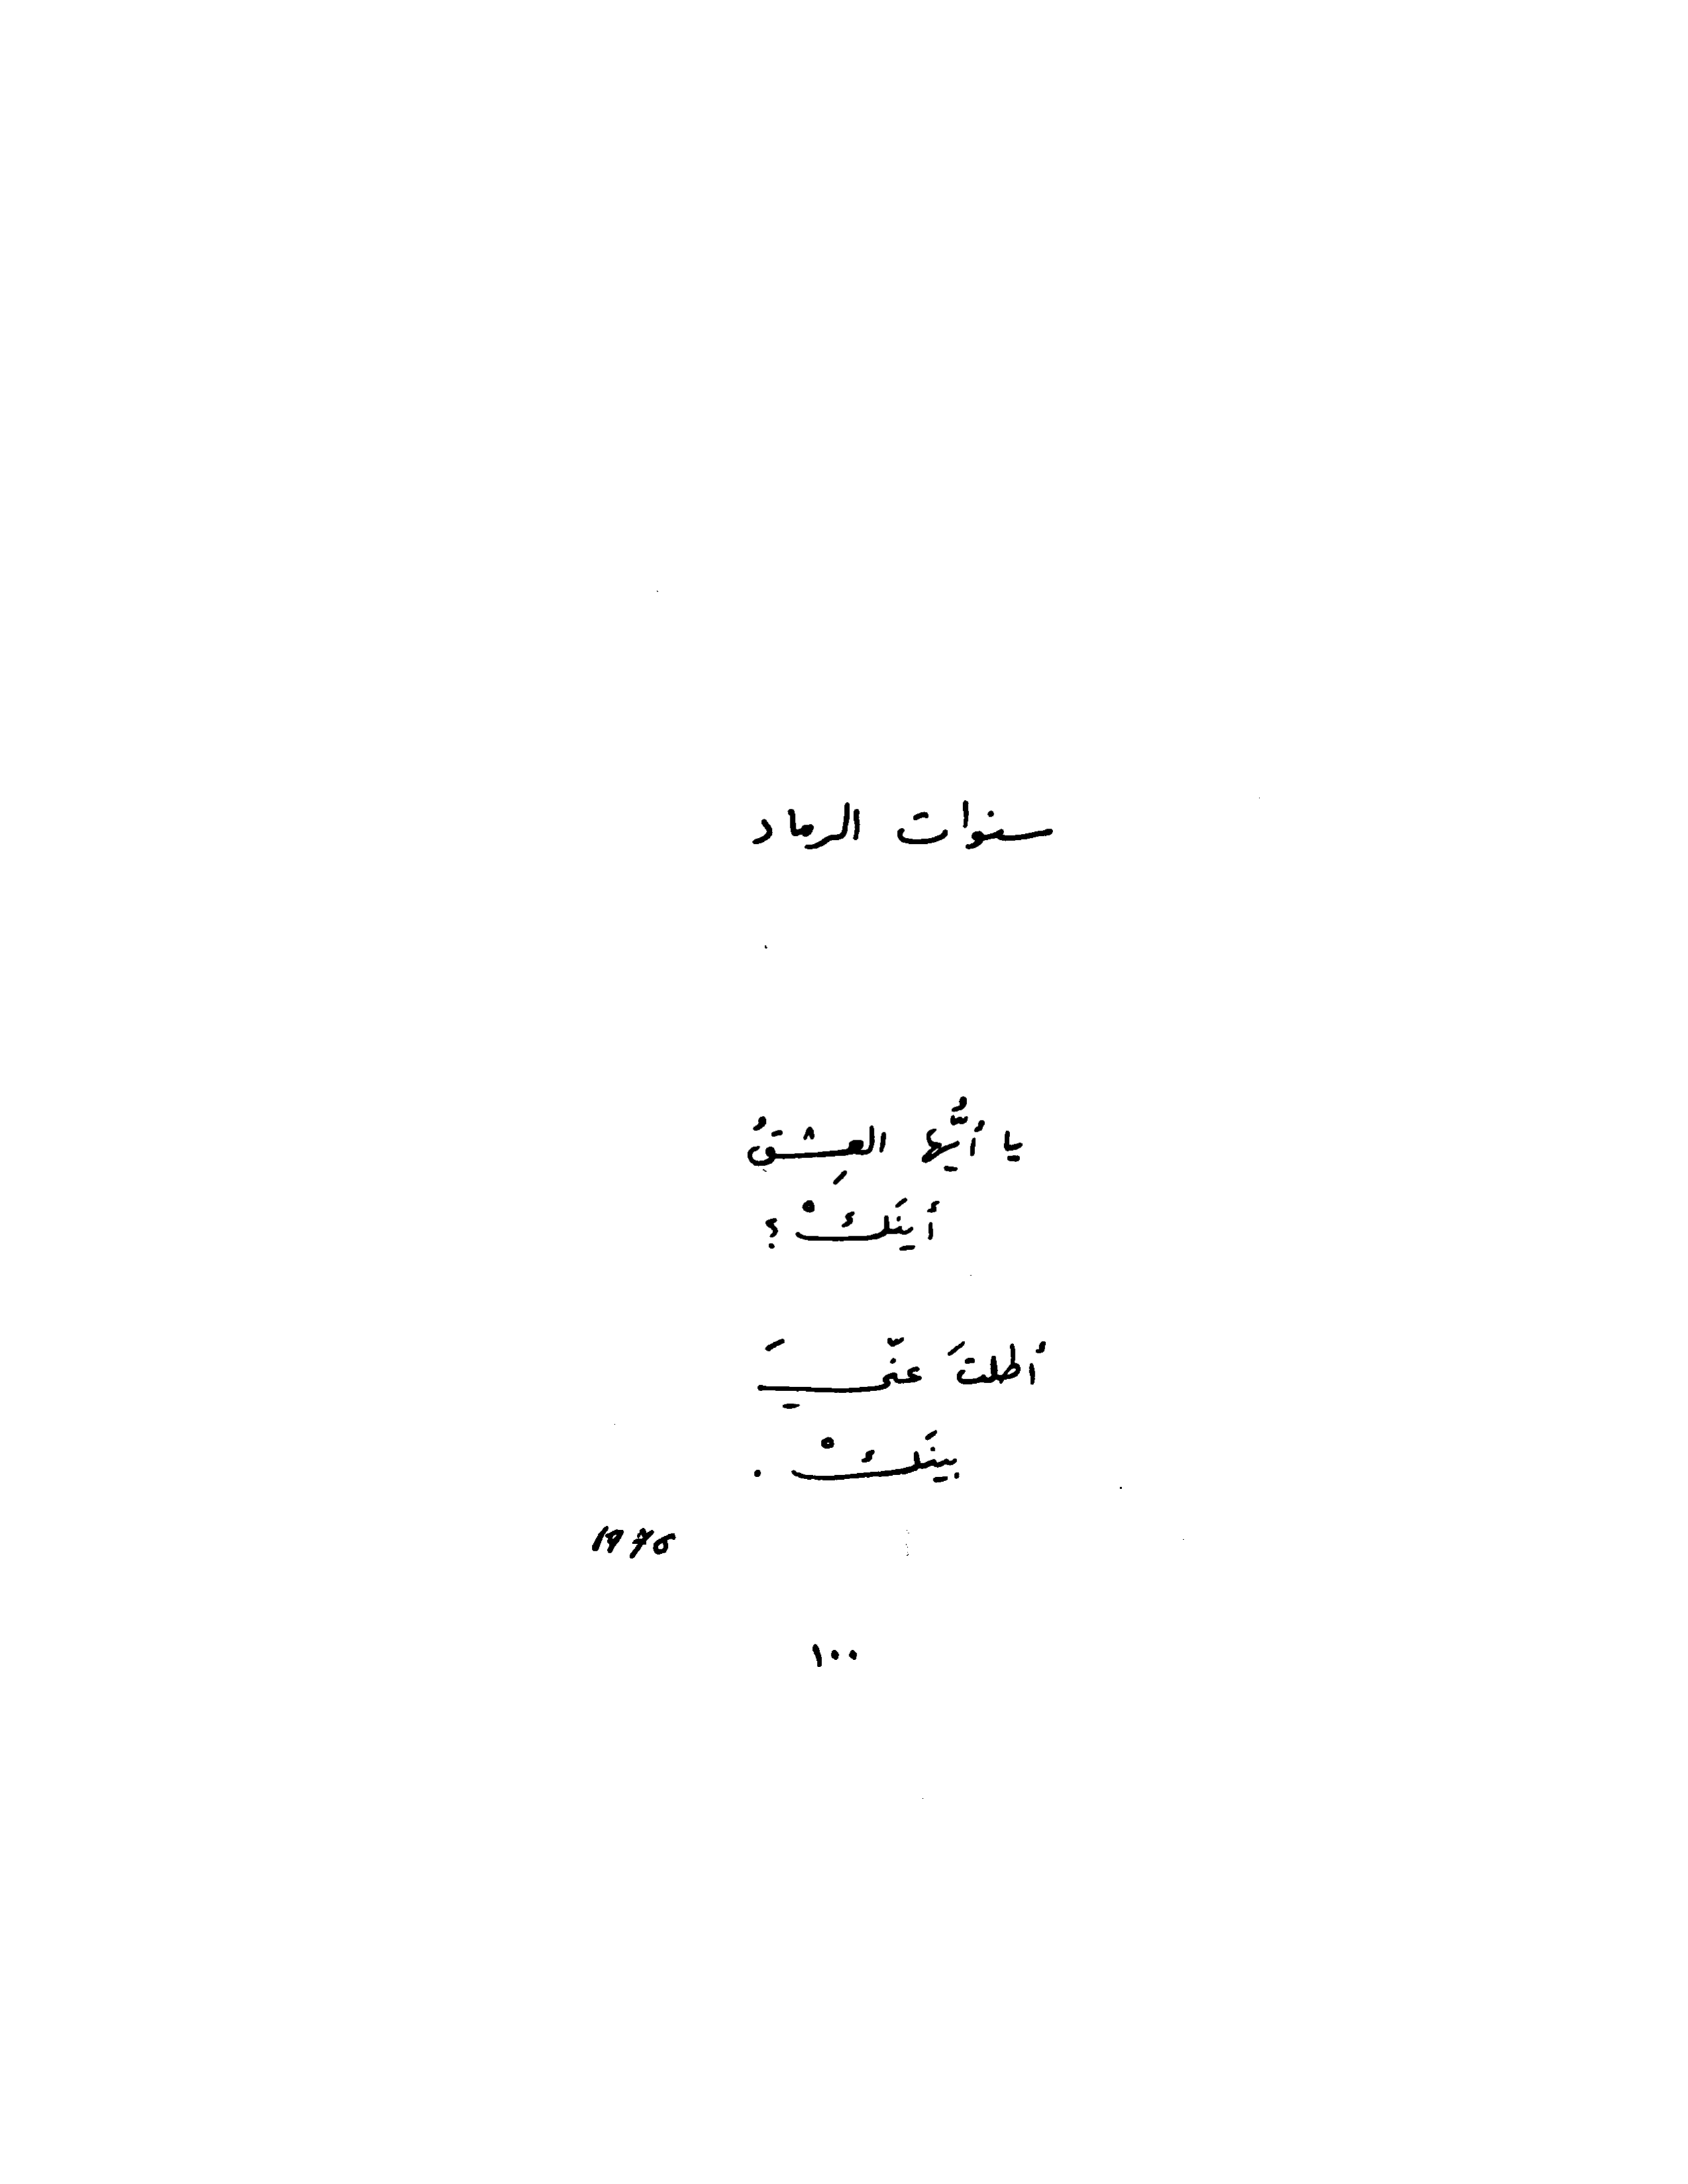 سنوات الرماد
يا أيُّها العِشقُ
أينَكْ؟
أطلتَ عنّيَ
بينَكْ.
1976
١٠٠